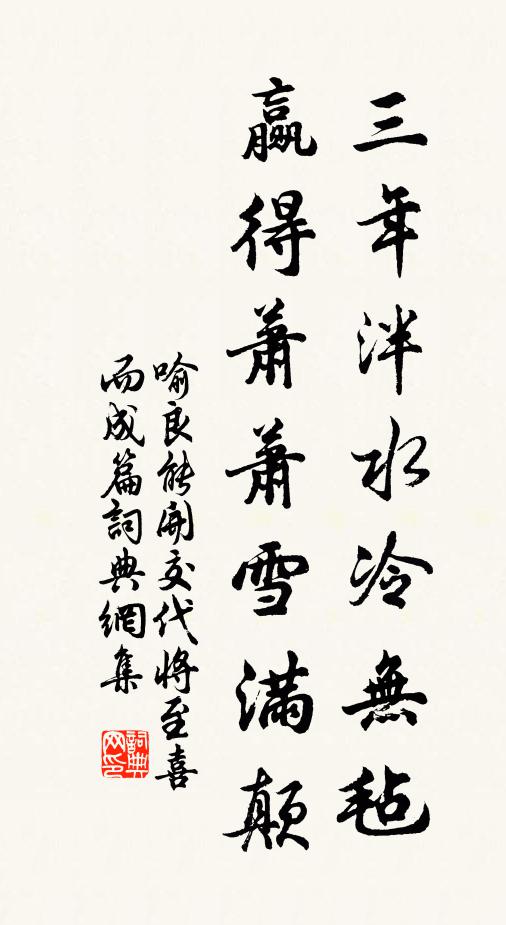 三年泮水冷無毡
贏得蕭蕭雪滿顛
喻良能聞交代將至喜
而成篇詞典網集
詞典网印